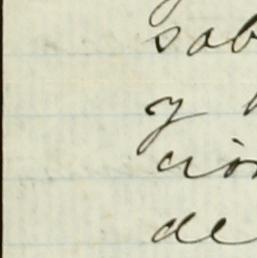 sab
y
ción
de